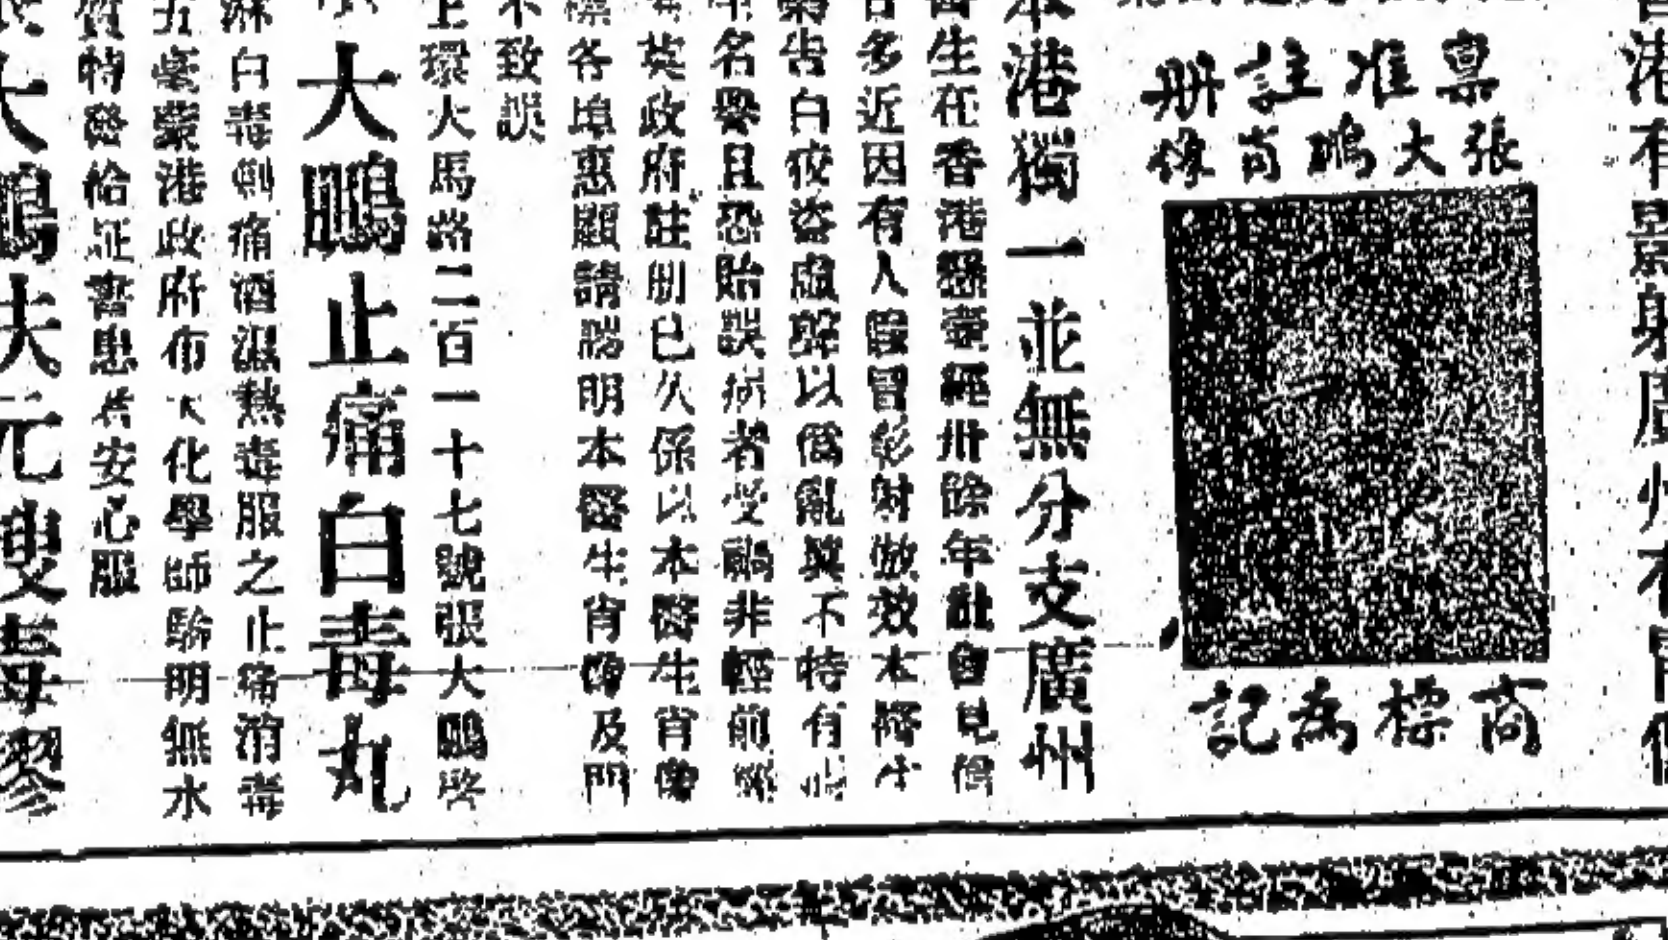 港有影射廣州有冒
稟准註冊
張大鵬肖像
商標為記
本港獨一並無分支廣州
醫生在香港懸壺經卅餘年社會見信
多近因有人假冒影射倣效本醫生
告白狡盜虛辭以偽亂真不特有
名譽且恐貽誤病者受禍非輕前
英政府註冊已久係以本醫生肖像
標各埠惠顧請認明本醫生肖像及門
不致誤
上環大馬路二百一十七號張大鵬啓
大鵬止痛白毒丸
淋白毒劇痛酒濕熱毒服之止痛消毒
五毫蒙港政府布大化學師驗明無水
質特發給証書患者安心服
大鵬扶元